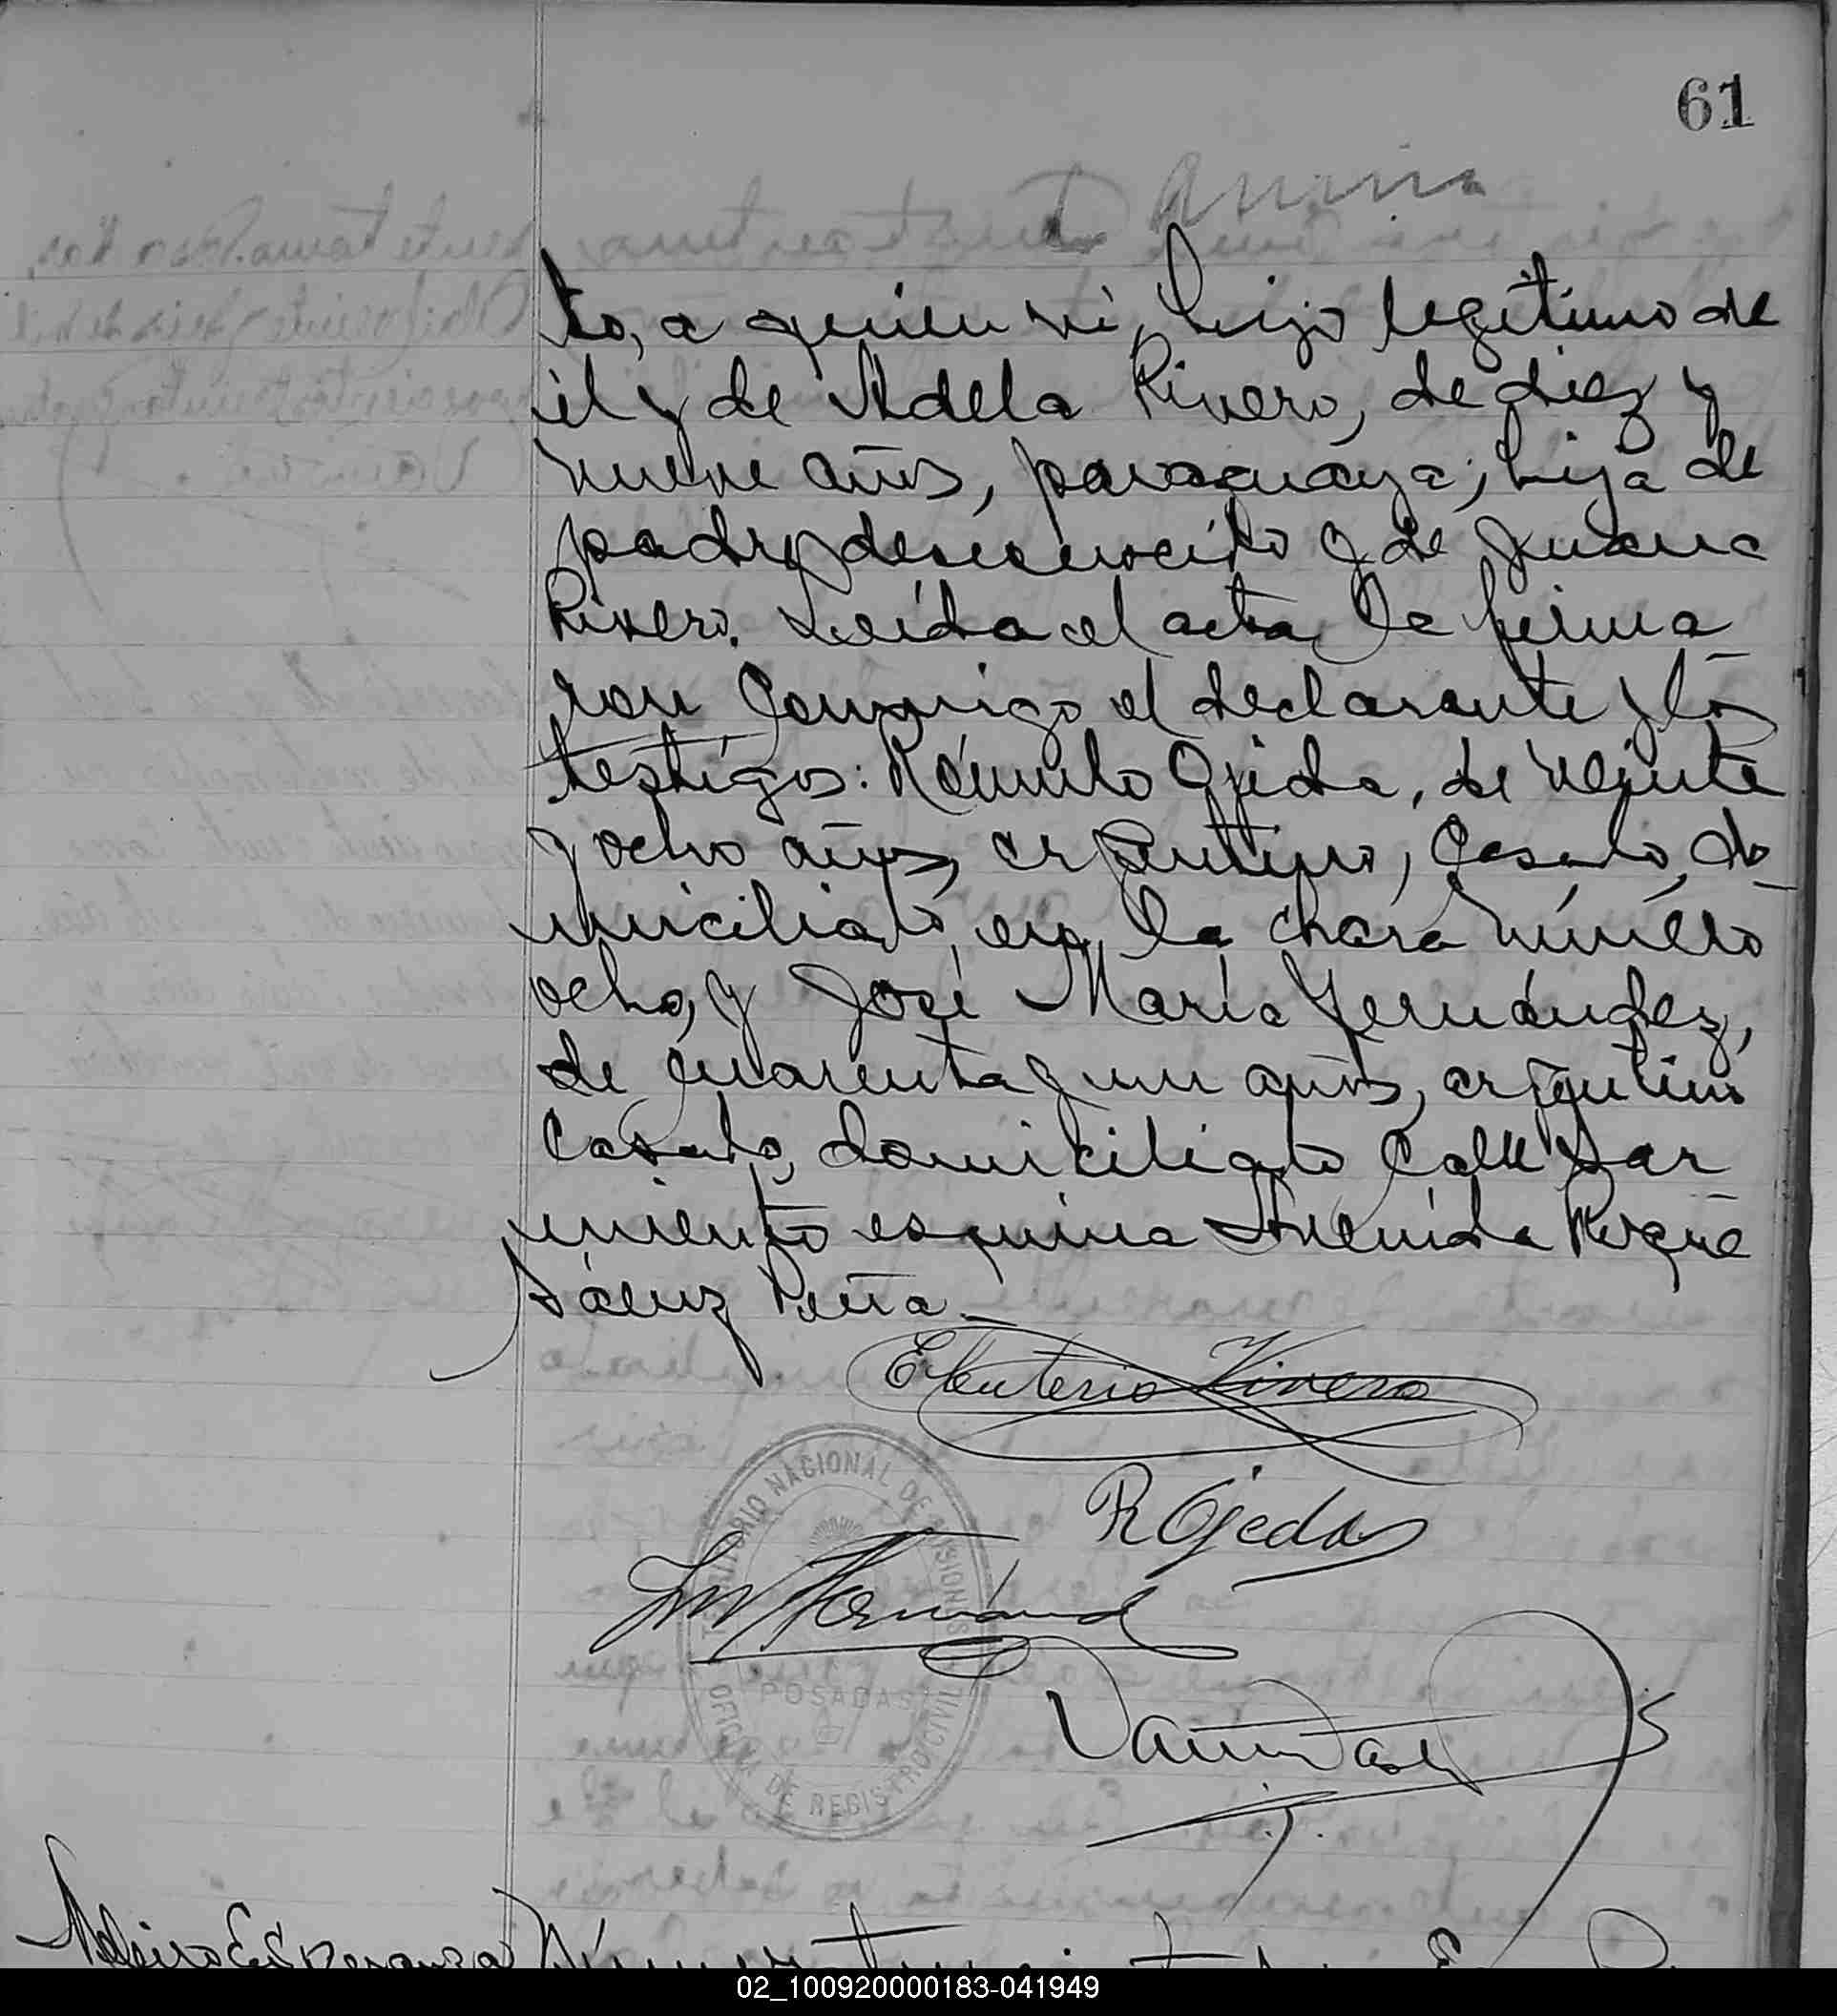 61
to, a quien vi, hijo legítimo de
él y de Adela Rivero, de diez y
nueve años, paraguaya; hija de
padre desconocido y de Juana
Rivero. Leída el acta la firma
ron conmigo el declarante y los
testigos: Rómulo Ojeda, de veinte
y ocho años, argentino, casado, do
miciliado en la chacra número
ocho, y José María Fernández,
de cuarenta y un años, argentino
casado, domiciliado calle Sar
miento esquina Avenida Roque
Sáenz Peña.
Eleuterio Rivero
R Ojeda
TERRITORIO NACIONAL DE MISIONES
POSADAS
OFICINA DE REGISTRO CIVIL
02_100920000183-041949